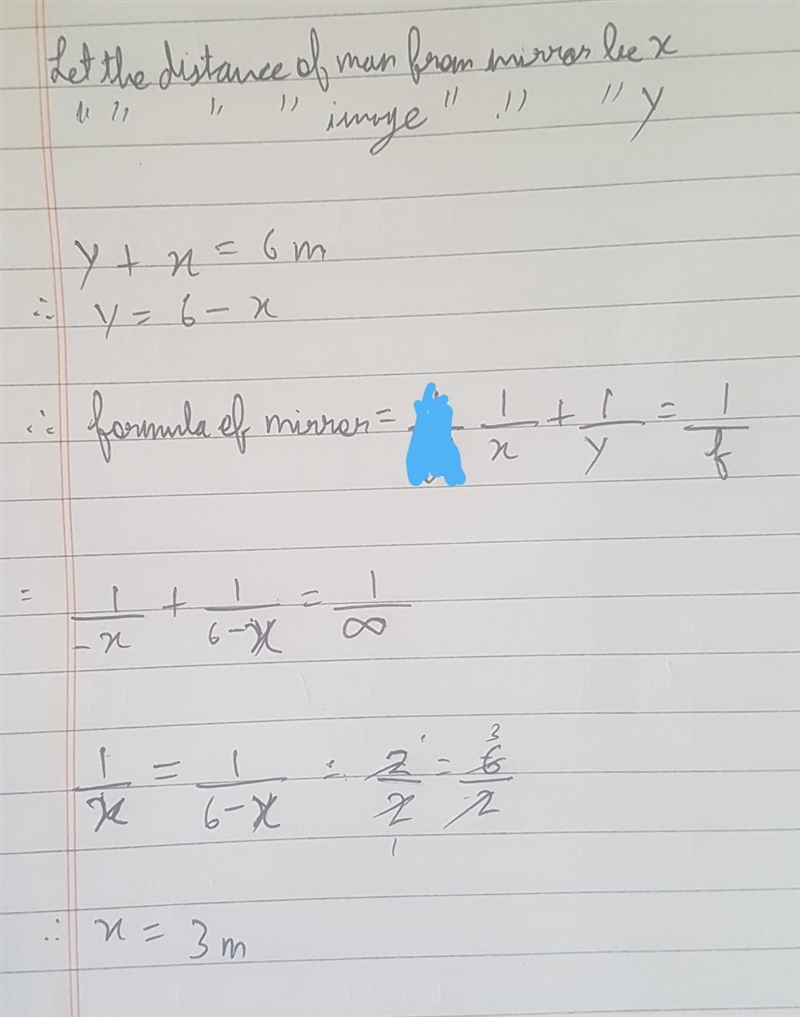 Let the distance of man from mirror be x
" " " " image " " " y
y + x = 6 m
∴ y = 6 - x
∴ formula of mirror = 1/x + 1/y = 1/f
= 1/-x + 1/6-x = 1/∞
1/x = 1/6-x = 2/2 = 6/2
1 1 3
∴ x = 3 m